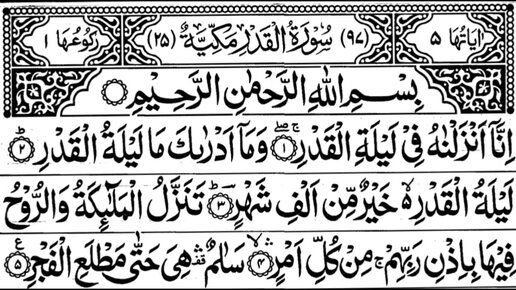 اٰيَاتُهَا ٥ (٩٧) سُوْرَةُ الْقَدْرِ مَكِّيَّةٌ (٢٥) رُكُوْعُهَا ١
بِسْمِ اللّٰهِ الرَّحْمٰنِ الرَّحِيْمِ
اِنَّاۤ اَنْزَلْنٰهُ فِيْ لَيْلَةِ الْقَدْرِ ۚۖ ١ وَمَاۤ اَدْرٰىكَ مَا لَيْلَةُ الْقَدْرِ ؕ ٢
لَيْلَةُ الْقَدْرِ ۙ۬ خَيْرٌ مِّنْ اَلْفِ شَهْرٍ ؕؔ ٣ تَنَزَّلُ الْمَلٰٓئِكَةُ وَالرُّوْحُ
فِيْهَا بِاِذْنِ رَبِّهِمْ ۚ مِنْ كُلِّ اَمْرٍ ۙۛ ٤ سَلٰمٌ ۛ۫ هِيَ حَتّٰى مَطْلَعِ الْفَجْرِ ٥ ع